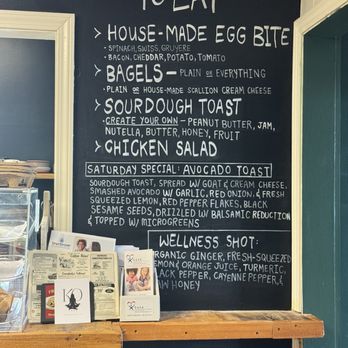 TO EAT
> HOUSE-MADE EGG BITE
• SPINACH, SWISS, GRUYERE
• BACON, CHEDDAR, POTATO, TOMATO
> BAGELS — PLAIN OR EVERYTHING
PLAIN OR HOUSE-MADE SCALLION CREAM CHEESE
> SOURDOUGH TOAST
• CREATE YOUR OWN — PEANUT BUTTER, JAM,
NUTELLA, BUTTER, HONEY, FRUIT
> CHICKEN SALAD
SATURDAY SPECIAL: AVOCADO TOAST
SOURDOUGH TOAST, SPREAD W/ GOAT & CREAM CHEESE,
SMASHED AVOCADO W/ GARLIC, RED ONION, & FRESH
SQUEEZED LEMON, RED PEPPER FLAKES, BLACK
SESAME SEEDS, DRIZZLED W/ BALSAMIC REDUCTION
& TOPPED W/ MICROGREENS
WELLNESS SHOT:
ORGANIC GINGER, FRESH-SQUEEZED
LEMON & ORANGE JUICE, TURMERIC,
BLACK PEPPER, CAYENNE PEPPER, &
RAW HONEY